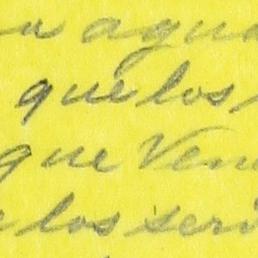 a agua
que los
que Ven
e los ser